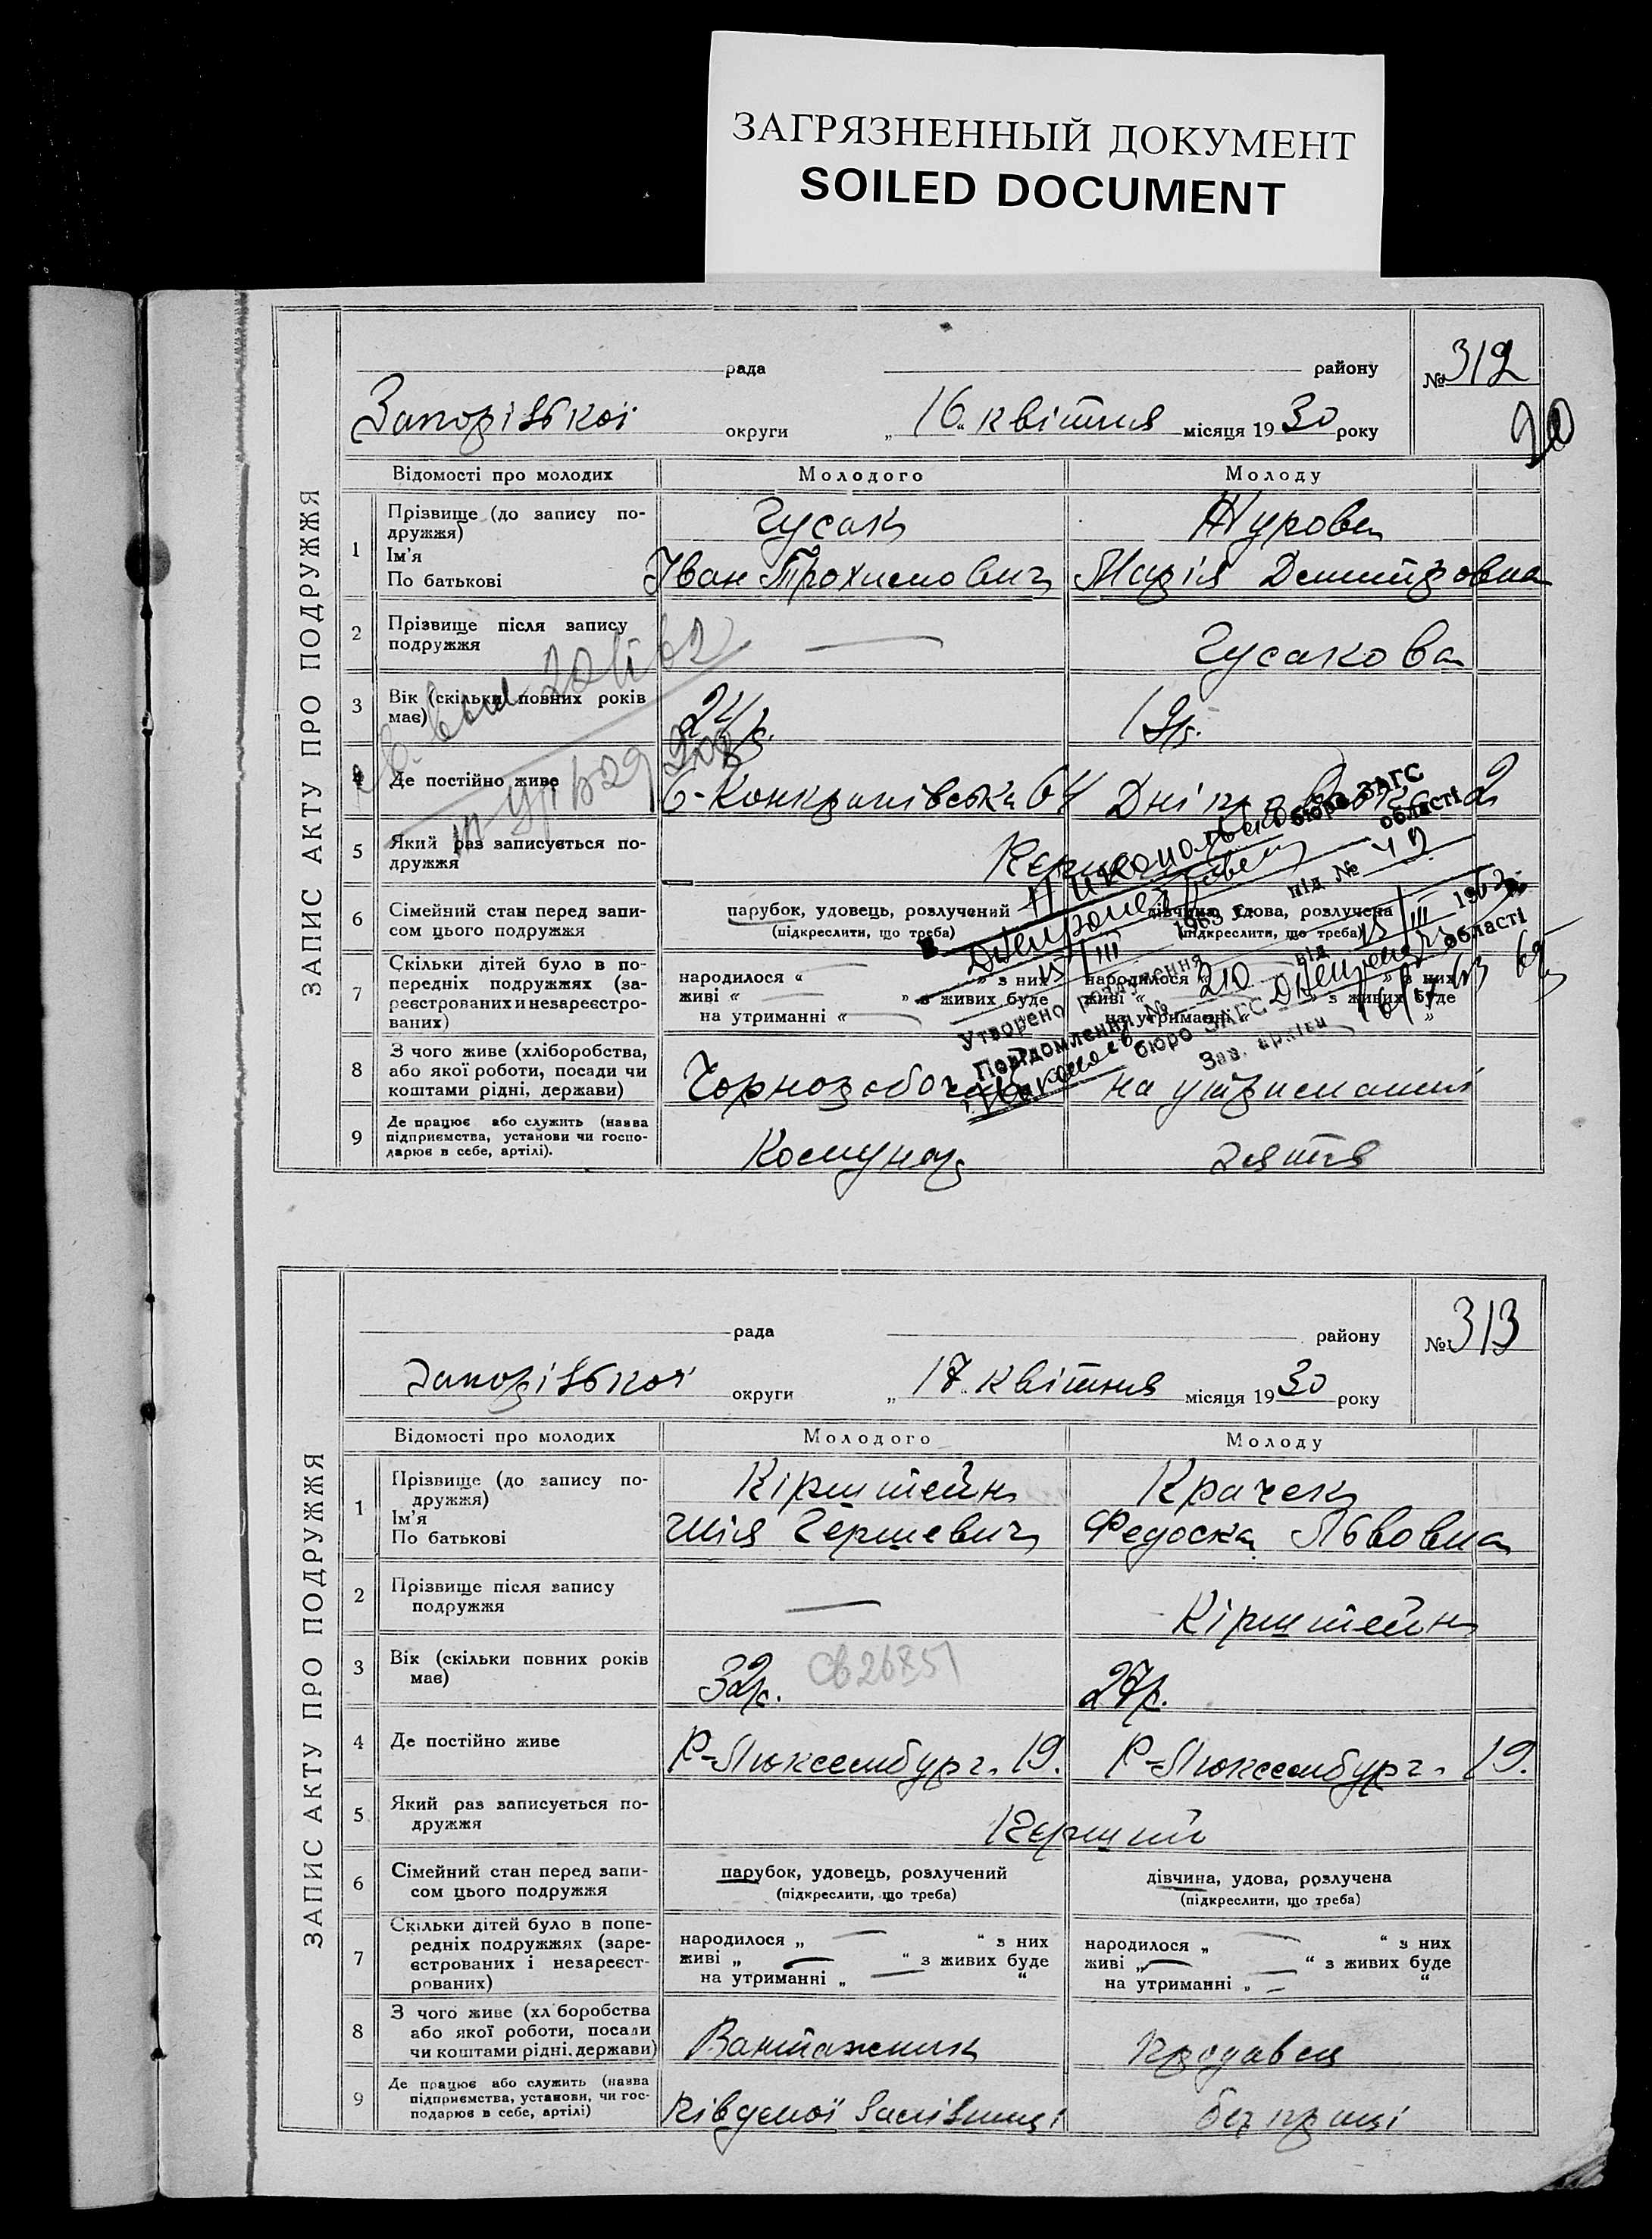 ЗАГРЯЗНЕННЫЙ ДОКУМЕНТ
SOILED DOCUMENT
ЗАПИС АКТУ ПРО ПОДРУЖЖЯ
рада району № 312
Запорізької округи „16„ квітня місяця 1930 року
20
Відомості про молодих Молодого Молоду
1 Прізвище (до запису по-
дружжя)
Ім'я
По батькові
Гусак
Іван Трохимович
Журова
Марія Дмитровна
2 Прізвище після запису
подружжя
— Гусакова
3 Вік (скільки повних років
має)
24р. 19р.
4 Де постійно живе
64
2
5 Який раз записується по-
дружжя
6 Сімейний стан перед запи-
сом цього подружжя
парубок, удовець, розлучений
(підкреслити, що треба)
дівчина, удова, розлучена
(підкреслити, що треба)
7 Скільки дітей було в по-
передніх подружжях (за-
реєстрованих и незареєстро-
ваних)
народилося “ — „ з них
живі “ — „ з живих буде
на утриманні “ —
народилося “ „ з них
живі “ „ з живих буде
на утриманні “ „
бюро ЗАГС
області
під № 42
Утворено розлучення
Повідомлення № 210 від 15/III 1963 р.
бюро ЗАГС області
Зав. архіву
8 З чого живе (хліборобства,
або якої роботи, посади чи
коштами рідні, держави)
Чорноробочий на утриманні
9 Де працює або служить (назва
підприємства, установи чи госпо-
дарює в себе, артілі).
Комунар зятя
ЗАПИС АКТУ ПРО ПОДРУЖЖЯ
рада району № 313
Запорізької округи „17„ квітня місяця 1930 року
Відомості про молодих Молодого Молоду
1 Прізвище (до запису по-
дружжя)
Ім'я
По батькові
Кірштейн
Шія Гершевич
Крачек
Федоска Львовна
2 Прізвище після запису
подружжя
— Кірштейн
3 Вік (скільки повних років
має)
32р. 27р.
4 Де постійно живе
Р-Люксембург. 19. Р-Люксембург. 19.
5 Який раз записується по-
дружжя
Перший
6 Сімейний стан перед запи-
сом цього подружжя
парубок, удовець, розлучений
(підкреслити, що треба)
дівчина, удова, розлучена
(підкреслити, що треба)
7 Скільки дітей було в попе-
редніх подружжях (заре-
єстрованих і незареєст-
рованих)
народилося „ — “ з них
живі „ — “ з живих буде
на утриманні „ — “
народилося „ — “ з них
живі „ — “ з живих буде
на утриманні „ — “
8 З чого живе (хл боробства
або якої роботи, посади
чи коштами рідні, держави)
Вантажник Продавец
9 Де працює або служить (назва
підприємства, установи, чи гос-
подарює в себе, артілі)
Південої Залізниці без праці